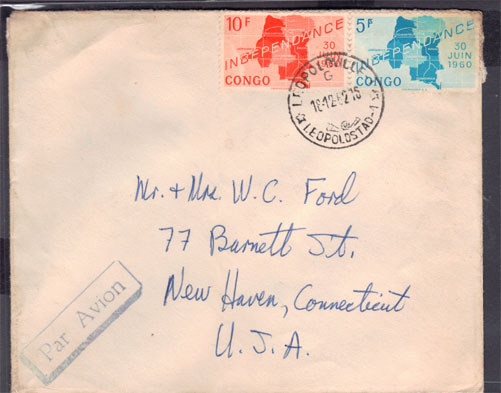 10 F
INDEPENDANCE
30
JUIN
1960
CONGO
5 F
INDEPENDANCE
30
JUIN
1960
CONGO
LEOPOLDVILLE
G
LEOPOLDSTAD-1
Mr. + Mrs. W. C. Ford
77 Barnett St.
New Haven, Connecticut
U. S. A.
Par Avion